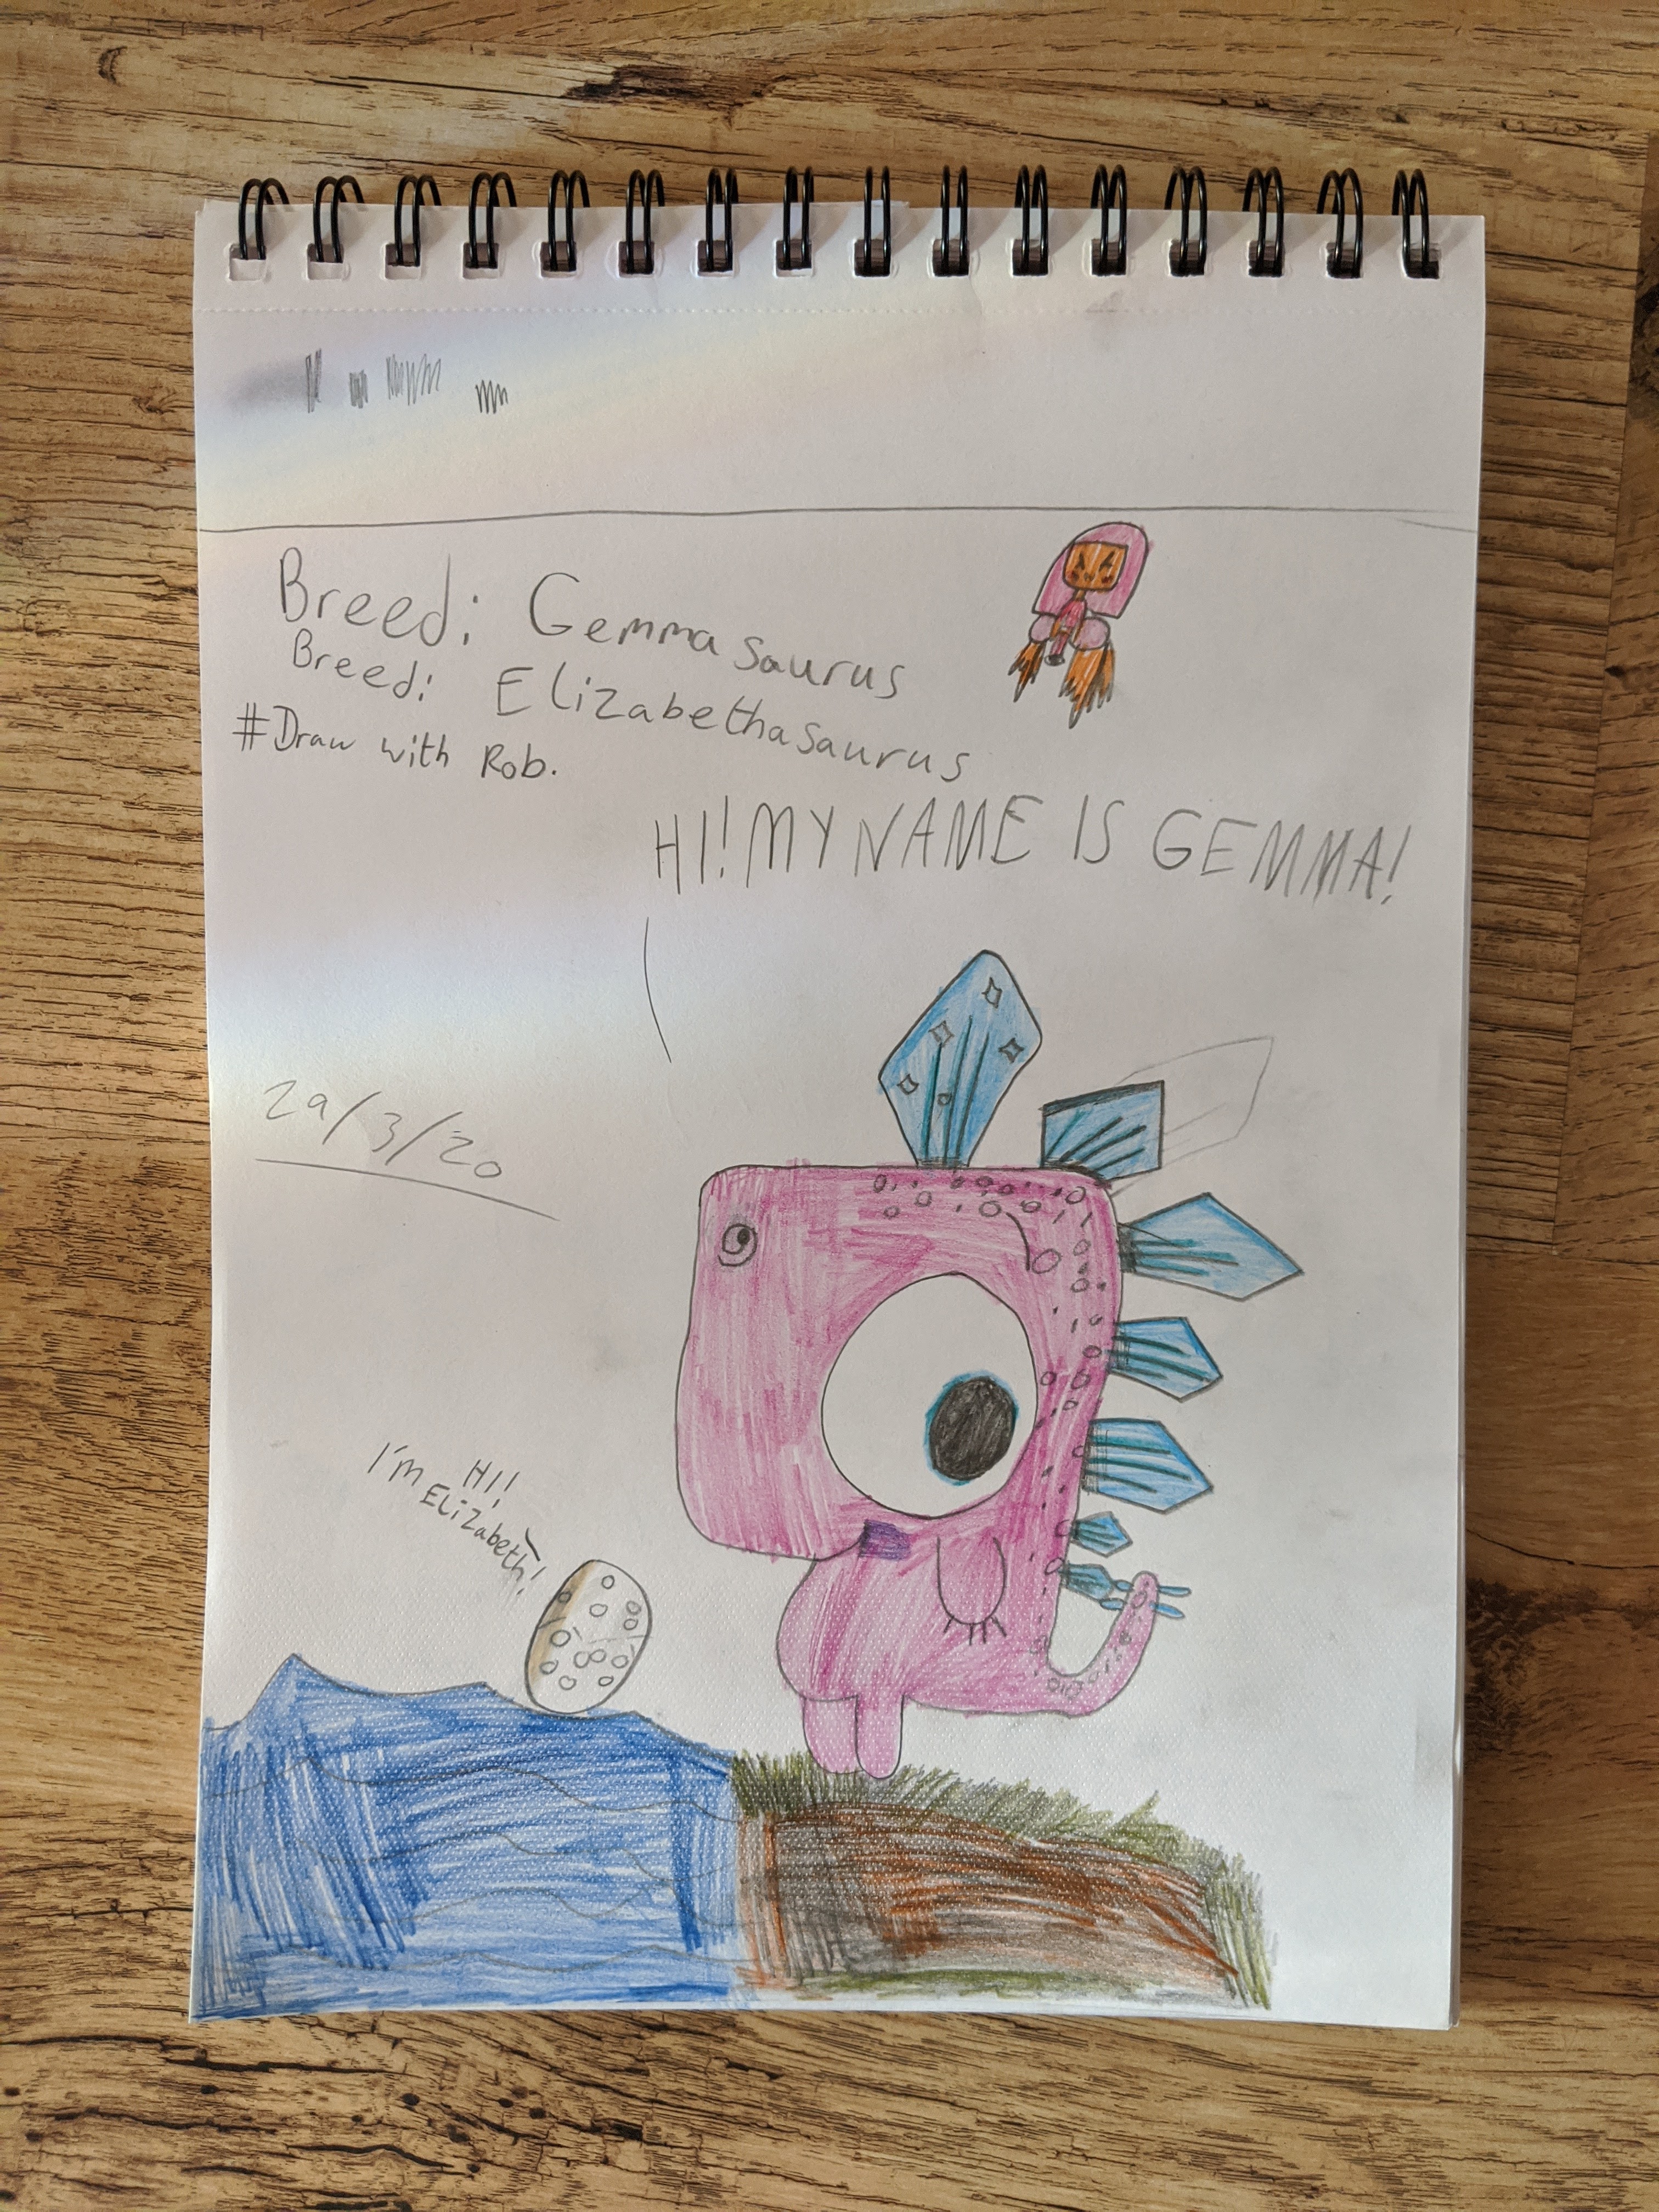 Breed: Gemmasaurus
Breed: Elizabethasaurus
#Draw with Rob.
HI! MY NAME IS GEMMA!
29/3/20
HI!
I'm Elizabeth!